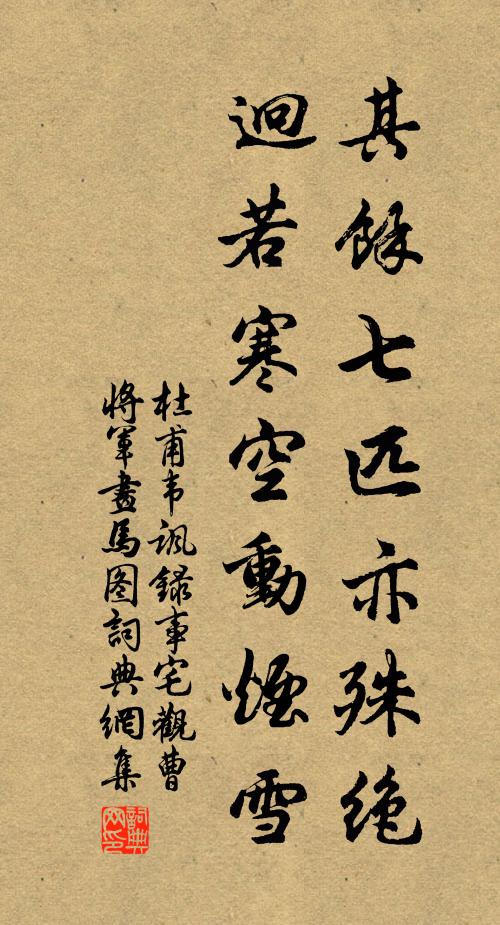 其餘七匹亦殊絶
迥若寒空動煙雪
杜甫韦諷録事宅觀曹
将軍畫馬图詞典網集
詞典网印